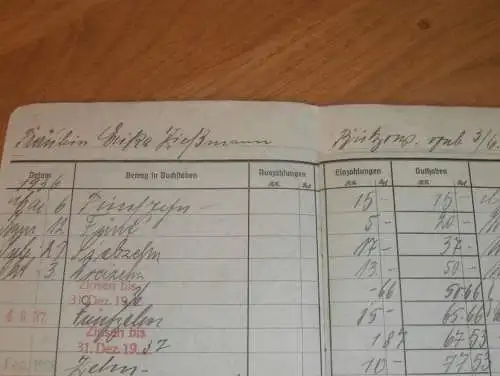 Fräulein Erika Zießmann Bützow. geb. 3/6.
Datum Betrag in Buchstaben Auszahlungen Einzahlungen Guthaben
RM. Rpf. RM. Rpf. RM.
1936
Mai 6 Fünfzehn - 15 - 15 -
12 Fünf 5 - 20 -
27 Siebzehn 17 - 37 -
3 Dreizehn 13 - 50 -
Zinsen bis
31. Dez. 1936 - 66 50 66
4 8 37 Fünfzehn 15 - 65 66
Zinsen bis
31. Dez. 1937 1 87 67 53
Zehn - 10 - 77 53